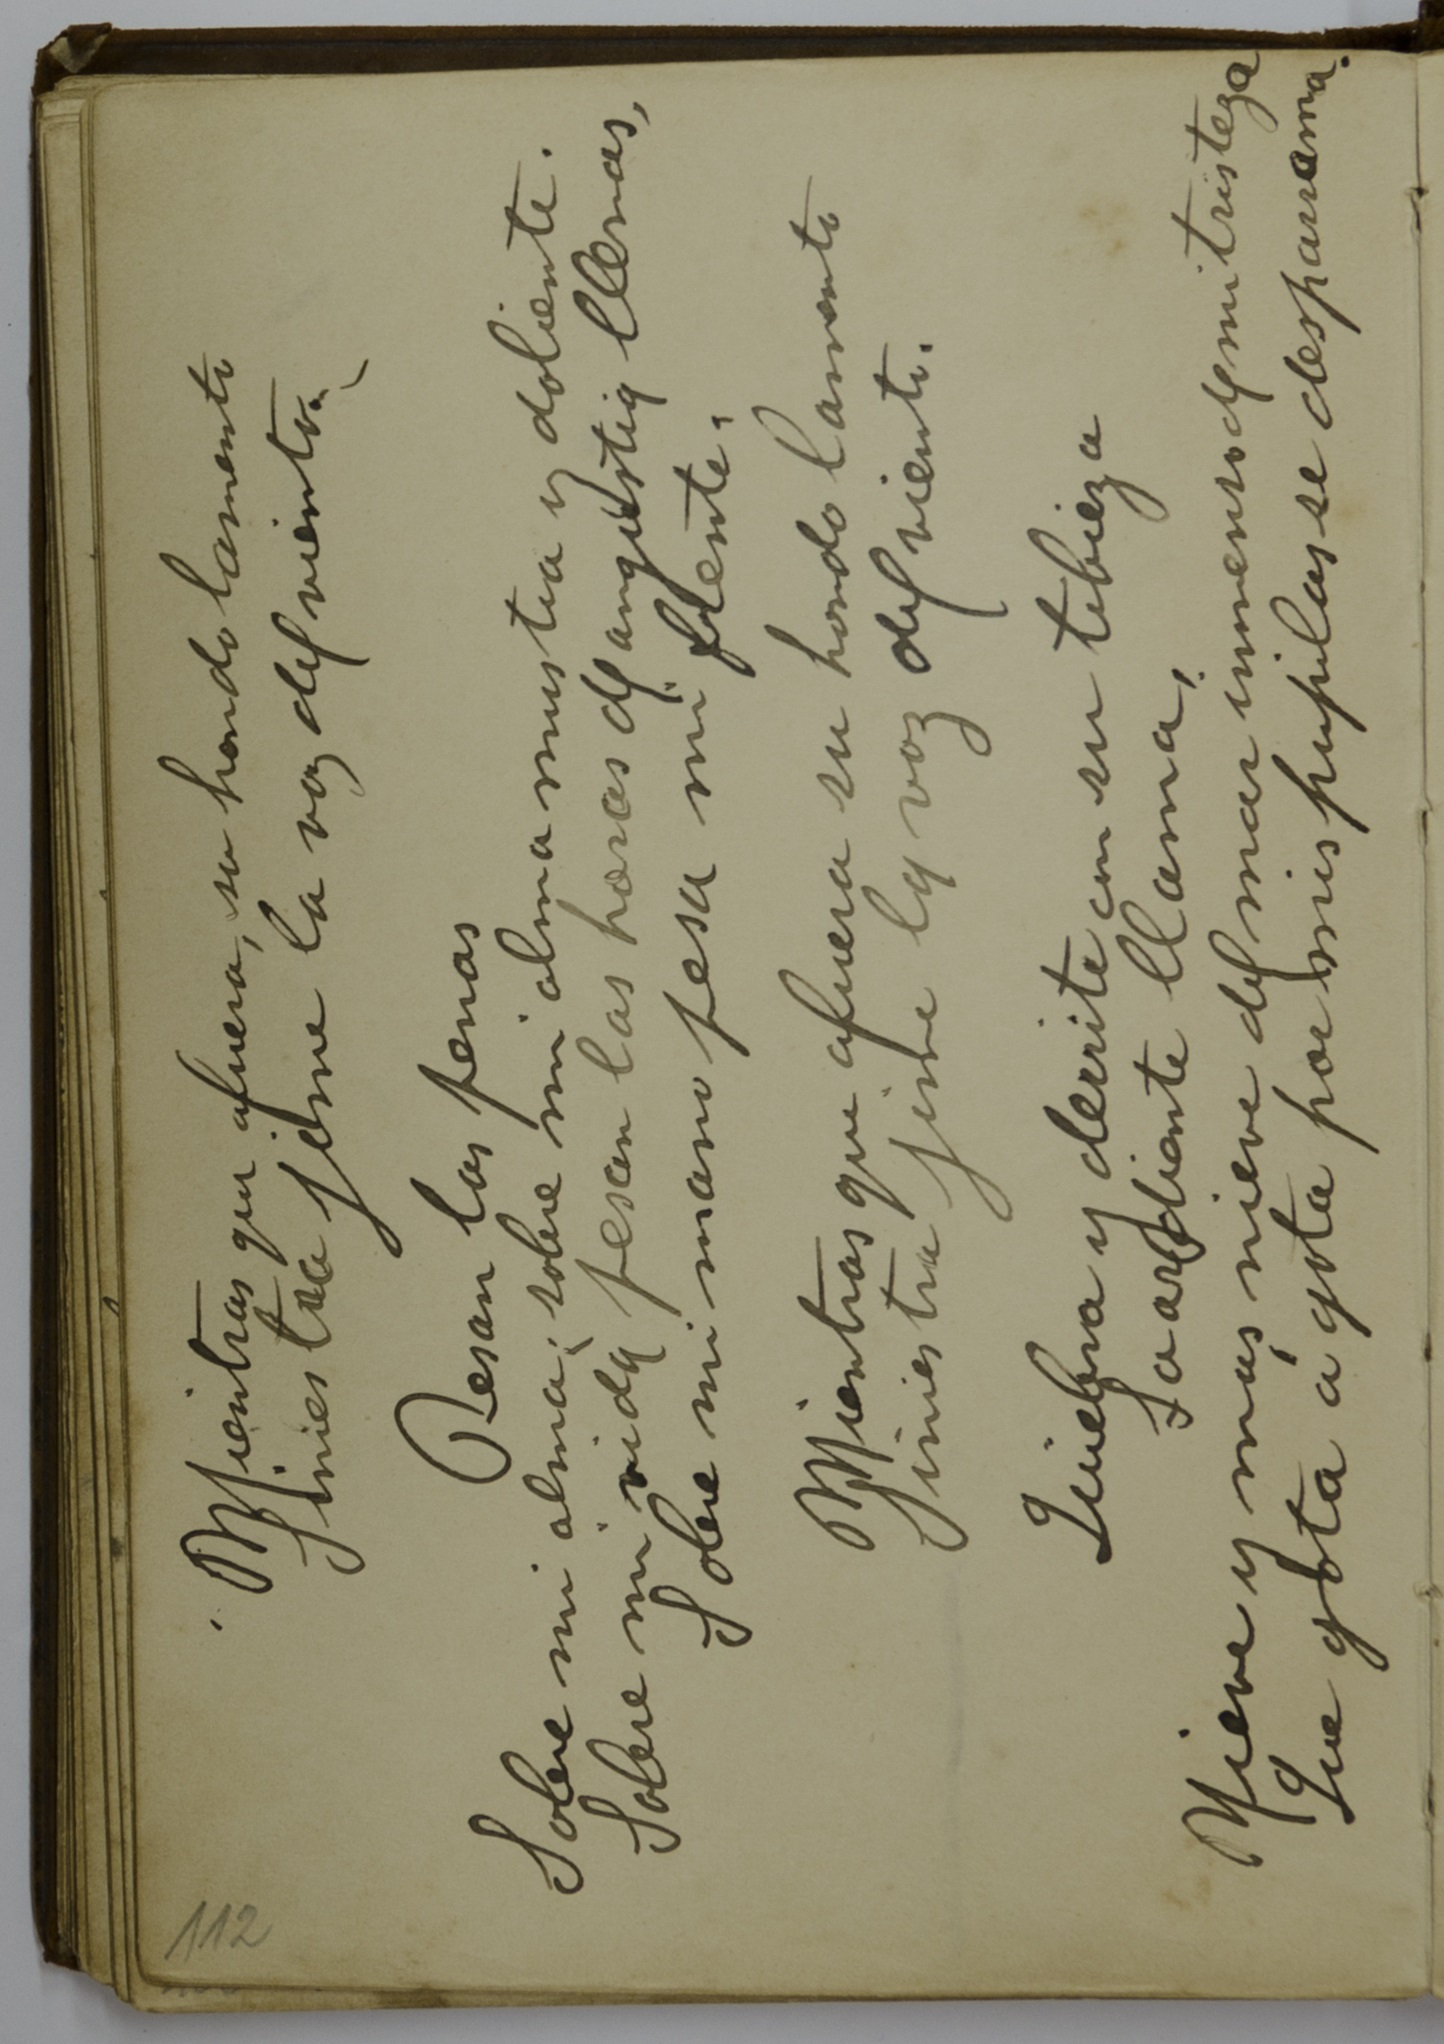 112
Mientras que afuera, su hondo lamento
Siniestra jime la voz del viento.
Pesan las penas
Sobre mi alma; sobre mi alma mustia y doliente.
Sobre mi vida pesan las horas de angustia llenas,
Sobre mi mano pesa mi frente.
Mientras que afuera su hondo lamento
Siniestra jime la voz del viento.
Quiebra y derrite con su tibieza
La ardiente llama,
Nieve y mas nieve del mar inmenso de mi tristeza
Que gota á gota por mis pupilas se desparrama.